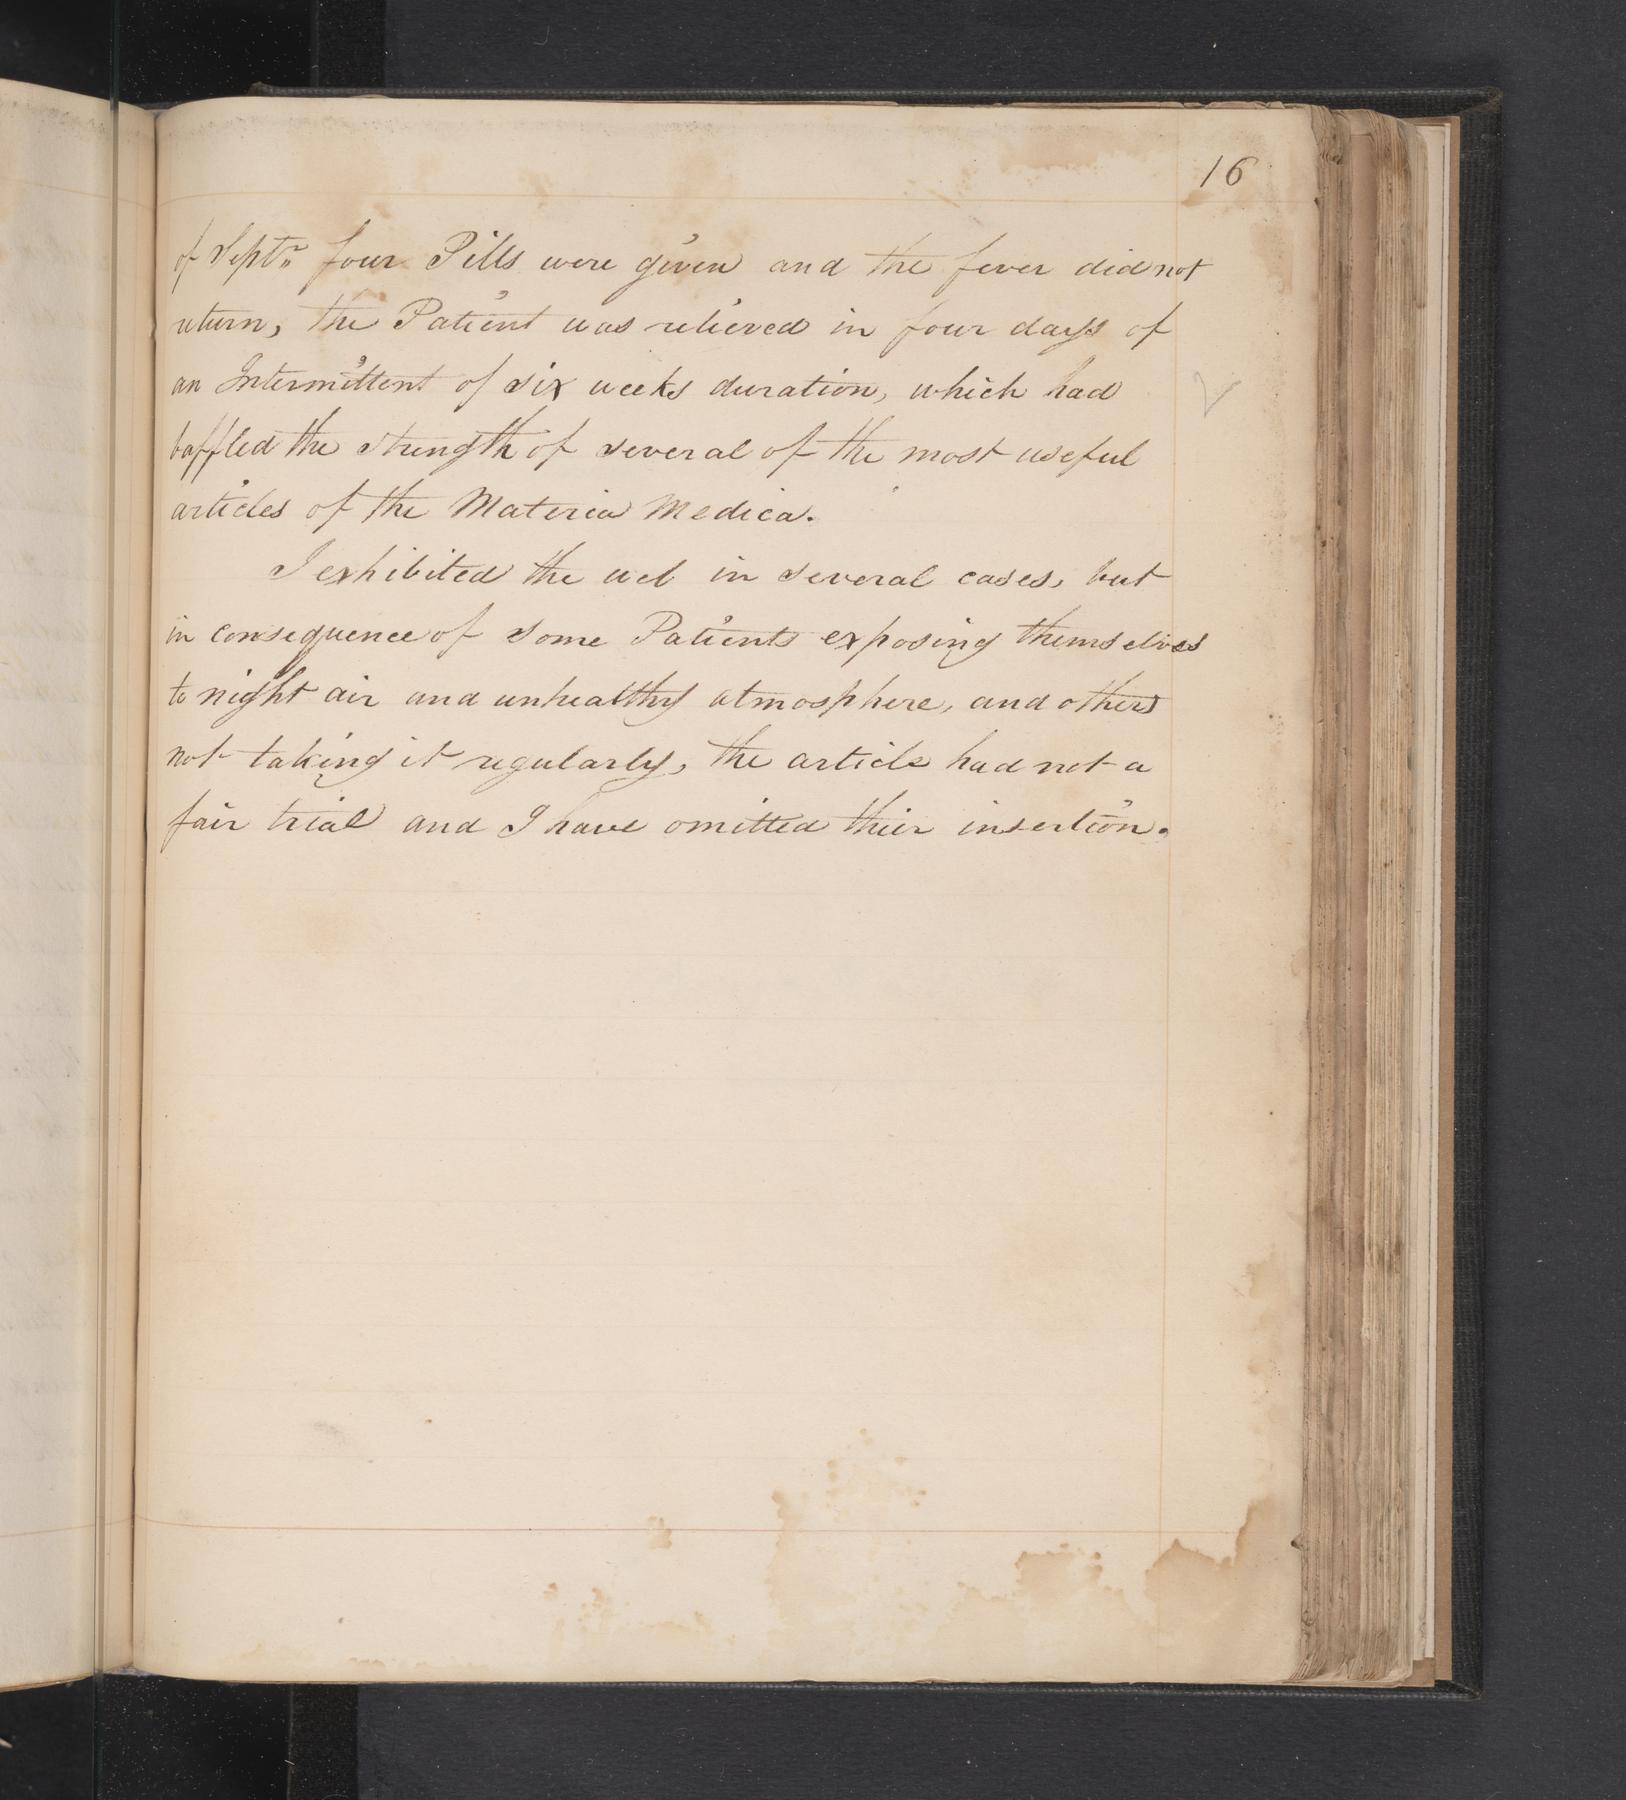 16
of Septr four Pills were given and the fever did not
return, the Patient was relieved in four days of
an Intermittent of six weeks duration, which had
baffled the strength of several of the most useful
articles of the Materia Medica.
I exhibited the web in several cases, but
in consequence of some Patients exposing themselves
to night air and unhealthy atmosphere, and others
not taking it regularly, the article had not a
fair trial and I have omitted thier insertion.